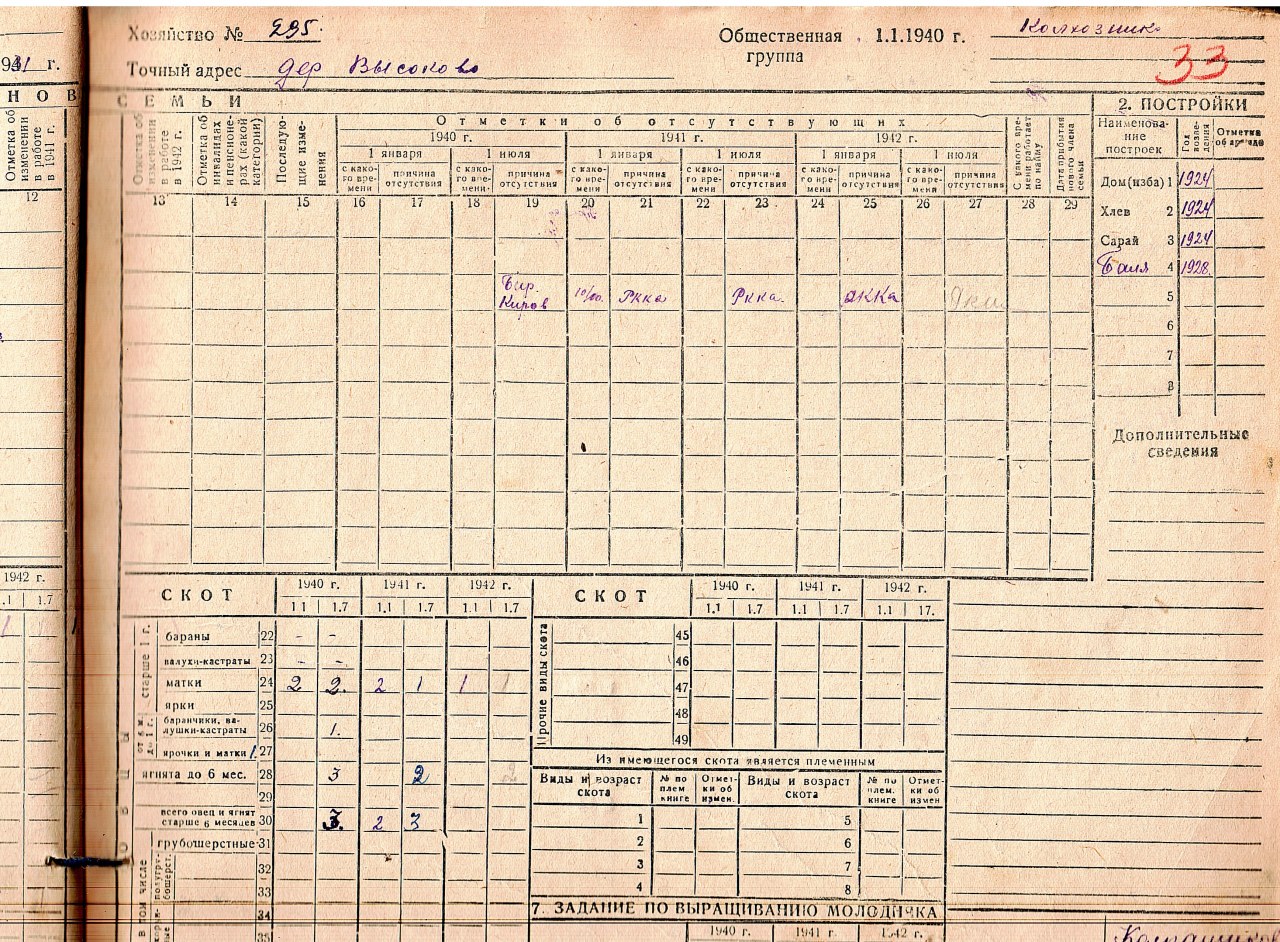 Хозяйство № 295.
Общественная группа 1.1.1940 г. Колхозник
Точный адрес дер Высоково
33
1941 г.
НОВ
СЕМЬИ
2. ПОСТРОЙКИ
Отметка об изменении в работе в 1941 г.
Отметка об изменении в работе в 1942 г.
Отметка об инвалидах и пенсионерах (какой категории)
Последующие изменения
Отметки об отсутствующих
1940 г. 1941 г. 1942 г.
1 января 1 июля 1 января 1 июля 1 января 1 июля
с какого времени причина отсутствия с какого времени причина отсутствия с какого времени причина отсутствия с какого времени причина отсутствия с какого времени причина отсутствия с какого времени причина отсутствия
С какого времени работает по найму
Дата прибытия нового члена семьи
12 13 14 15 16 17 18 19 20 21 22 23 24 25 26 27 28 29
Наименование построек Год возведения
Дом(изба) 1 1924
Хлев 2 1924
Сарай 3 1924
Баня 4 1928
5
6
7
8
Киров Ркка Ркка. РККа
Дополнительные сведения
1942 г.
1.1 1.7
СКОТ 1940 г. 1941 г. 1942 г.
1 1 1.7 1.1 1.7 1.1 1.7
старше 1 г.
бараны 22 - -
валухи-кастраты 23 - -
матки 24 2 2. 2 1 1 1
ярки 25
баранчики, валушки-кастраты 26 1.
ярочки и матки 27
ягнята до 6 мес. 28 3 2 2
29
всего овец и ягнят старше 6 месяцев 30 3. 2 3
в том числе
грубошерстные 31
32
33
34
35
СКОТ 1940 г. 1941 г. 1942 г.
1.1 1.7 1.1 1.7 1.1 17.
Прочие виды скота
45
46
47
48
49
Из имеющегося скота является племенным
Виды и возраст скота № по плем. книге Отметки об измен. Виды и возраст скота № по плем. книге Отметки об измен
1 5
2 6
3 7
4 8
7. ЗАДАНИЕ ПО ВЫРАЩИВАНИЮ МОЛОДНЯКА
1940 г. 1941 г. 1942 г.